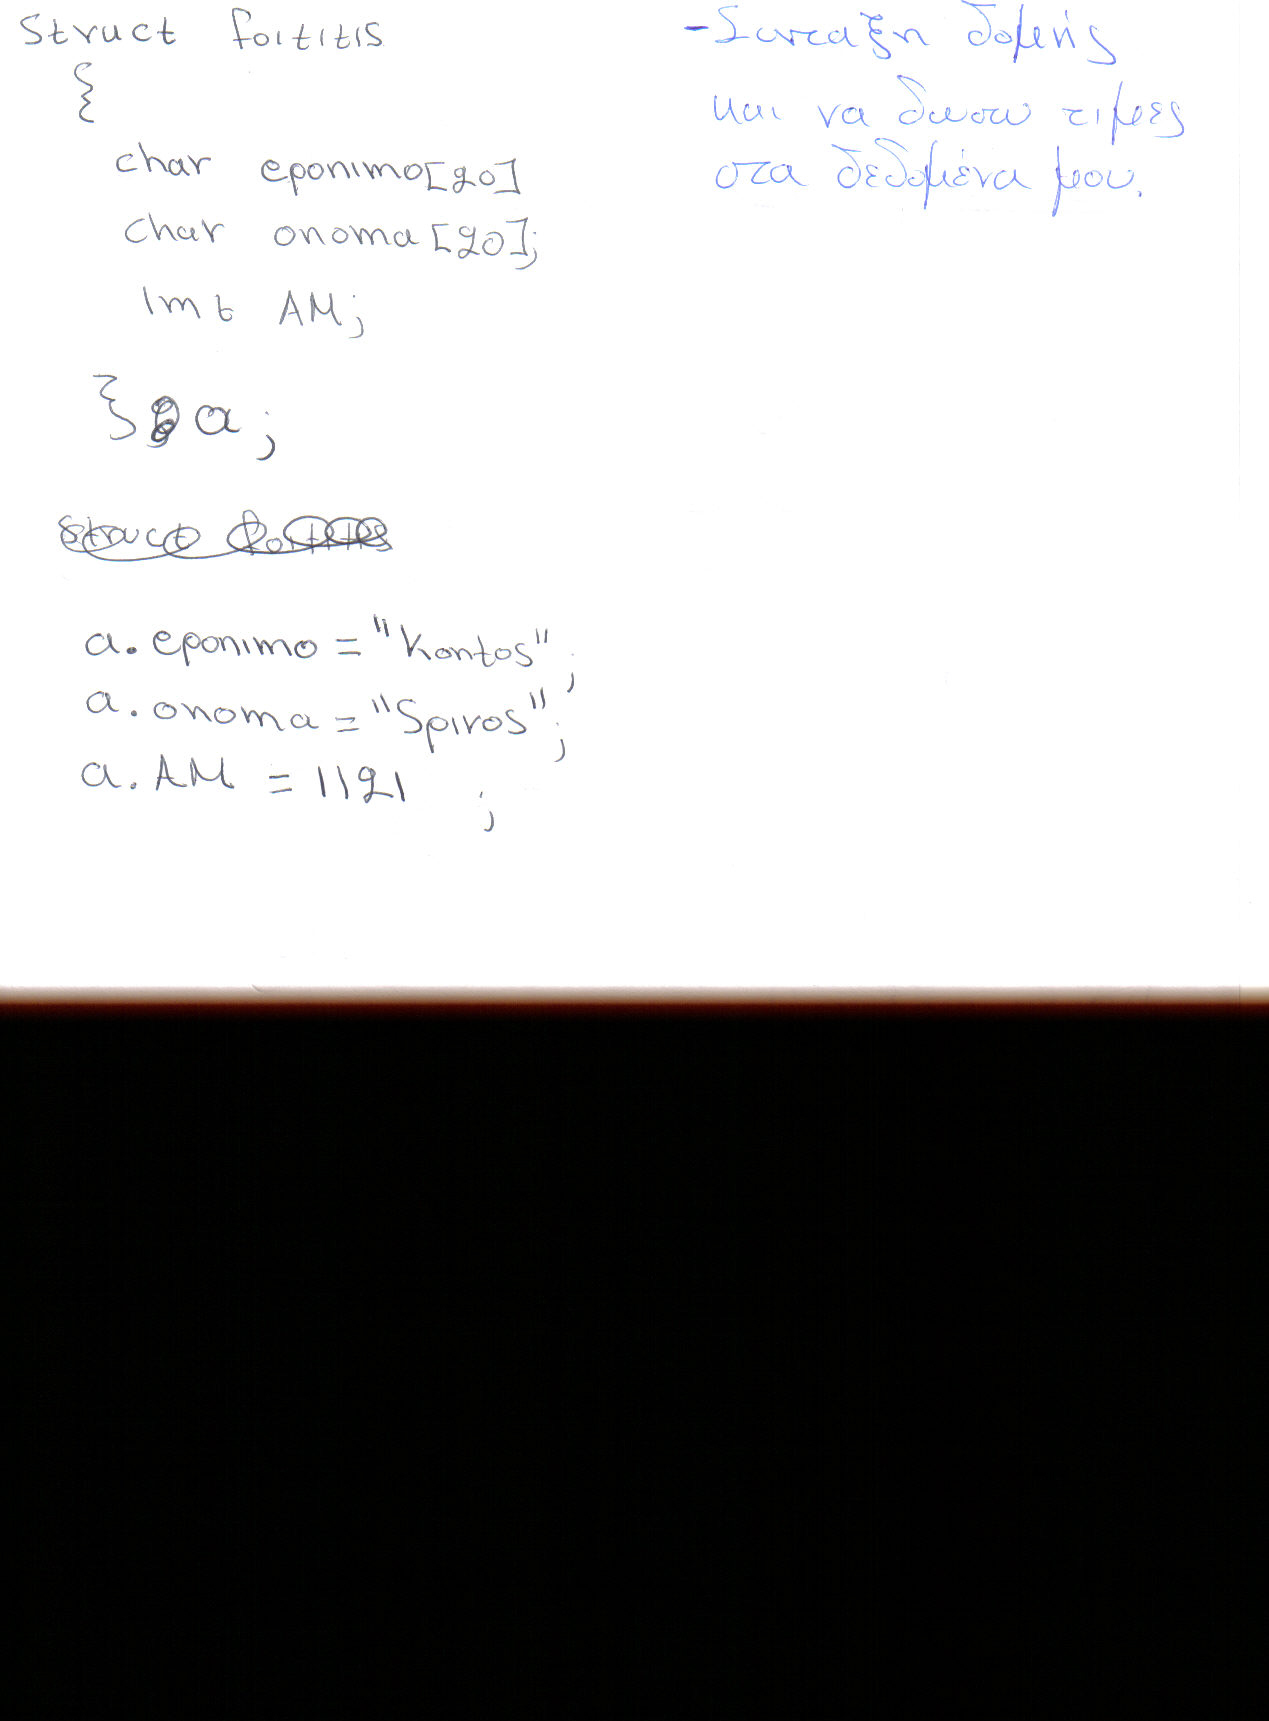 struct foititis
{
char eponimo[20]
char onoma[20];
int AM;
} a;
struct foititis
a.eponimo = "Kontos";
a.onoma = "Spiros";
a.AM = 1121 ;
-Συνταξη δομής
και να δωσω τιμες
στα δεδομένα μου.